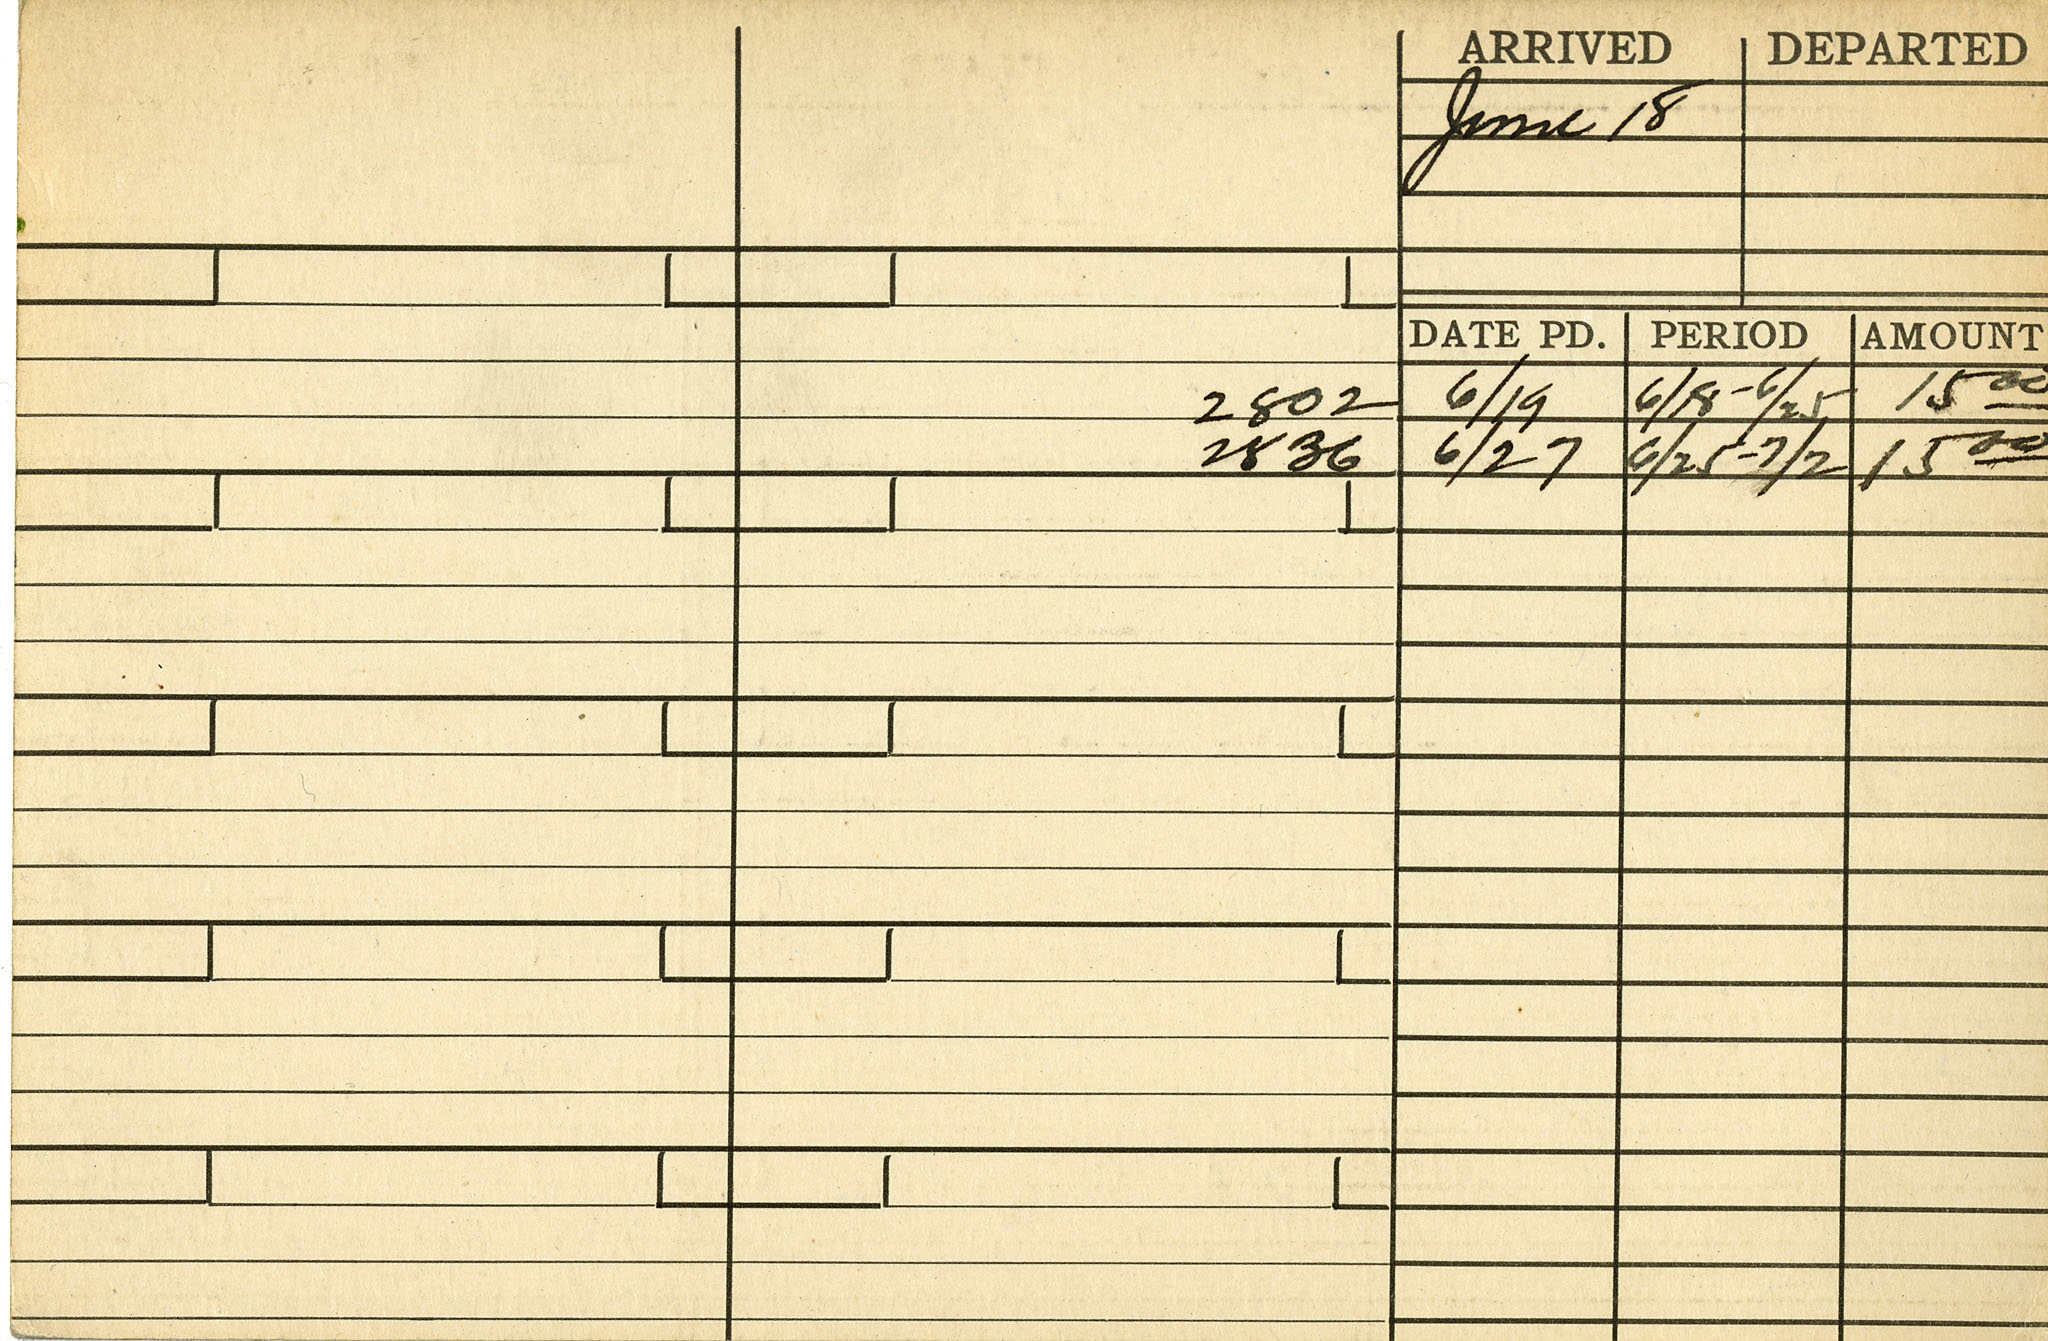 ARRIVED DEPARTED
June 18
DATE PD. PERIOD AMOUNT
2802 6/19 6/18-6/25 15 00
2836 6/27 6/25-7/2 15 00